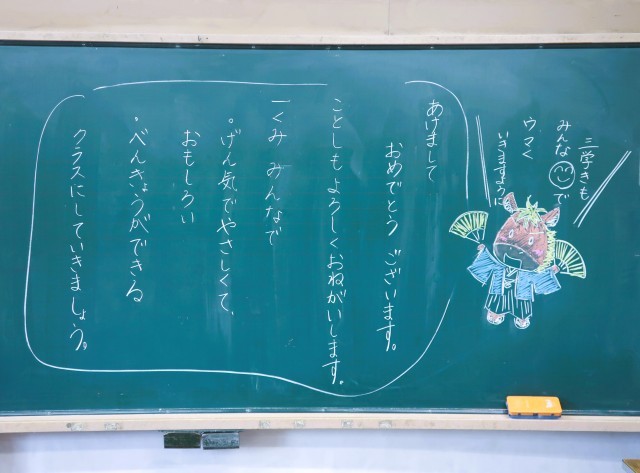 三学きも
みんな☺で
ウマく
いきますように
あけまして
おめでとう ございます。
ことしもよろしくおねがいします。
一くみ みんなで
。げん気でやさしくて、
おもしろい
・べんきょうができる
クラスにしていきましょう。